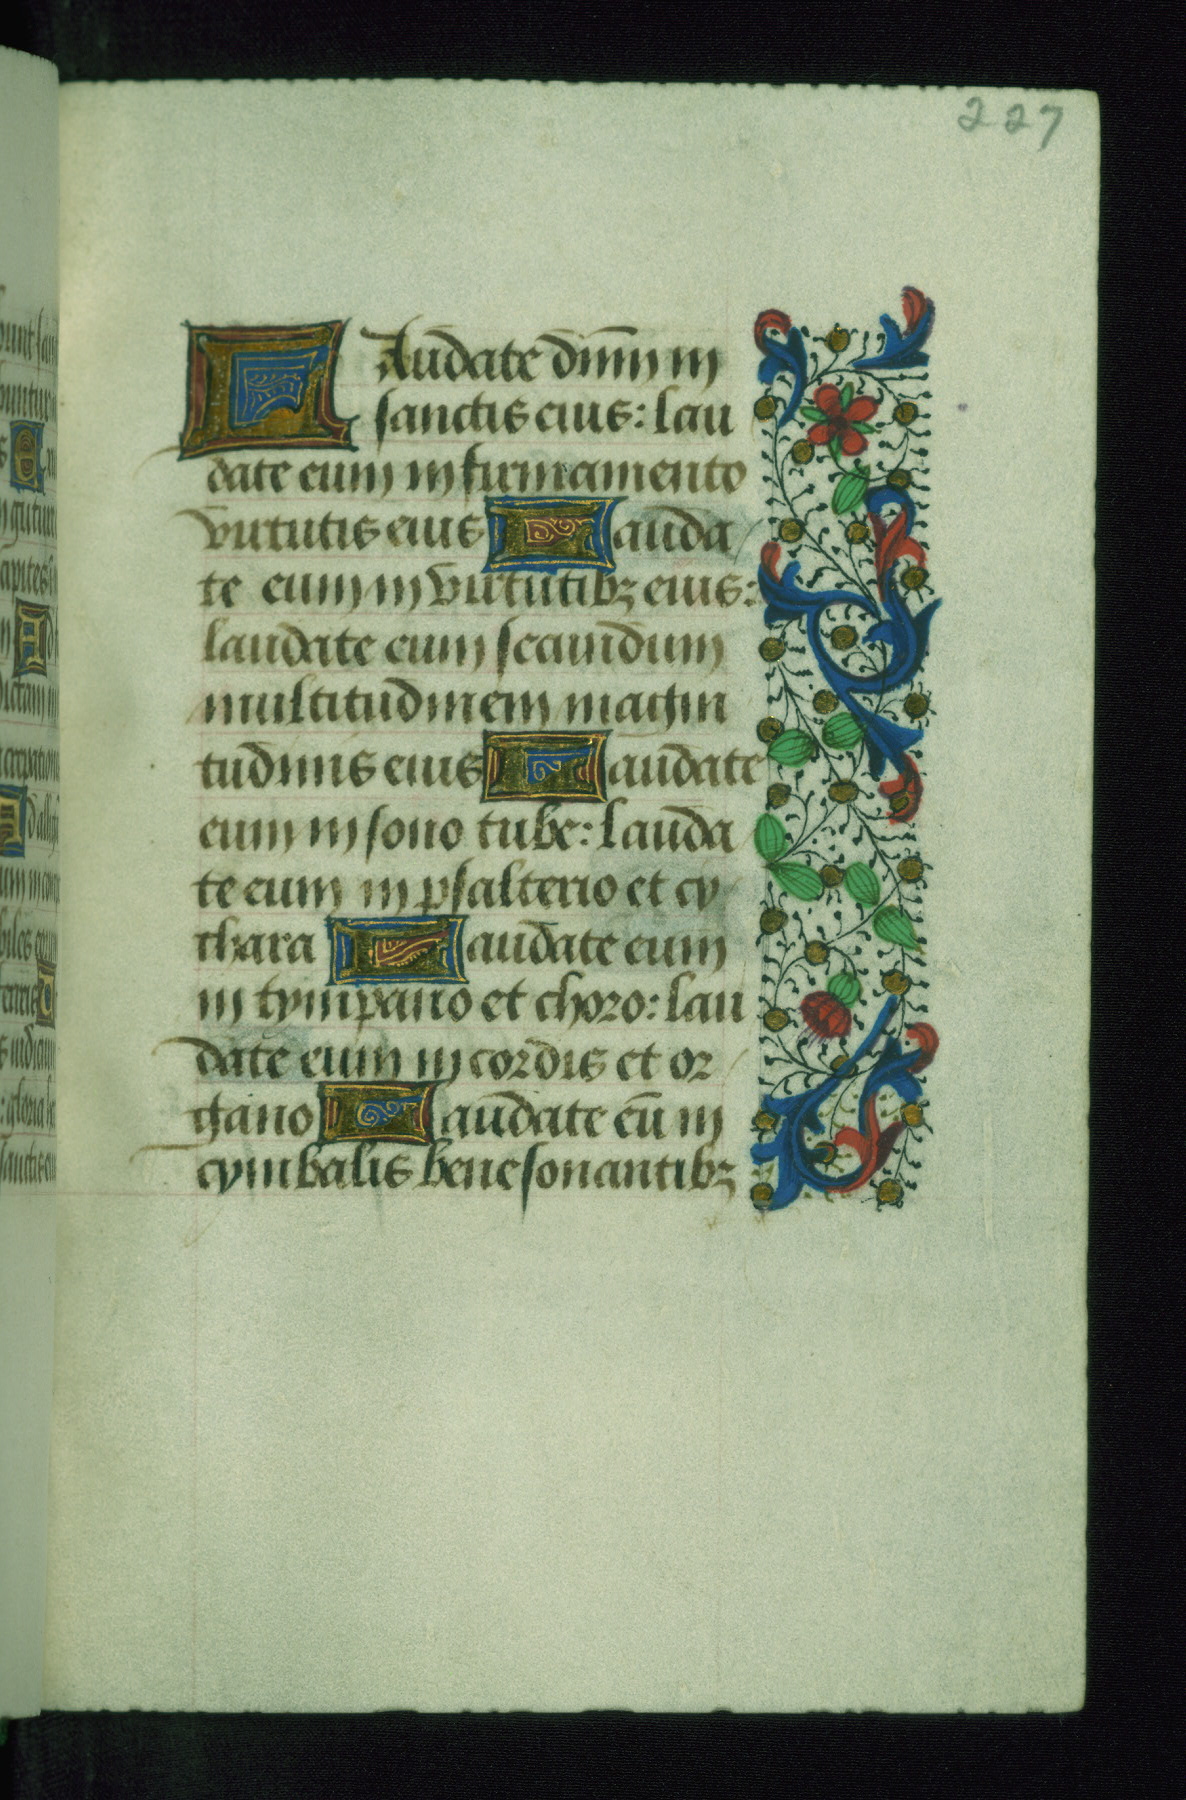 227
LAudate dnm in
sanctis eius: lau
date eum in firmamento
virtutis eius Lauda
te eum in virtutibꝫ eius:
laudate eum secundum
multitudinem magni
tudinis eius Laudate
eum in sono tube: lauda
te eum in psalterio et cy
thara Laudate eum
in tympano et choro: lau
date eum in cordis et or
gano Laudate eū in
cymbalis bene sonantibꝫ